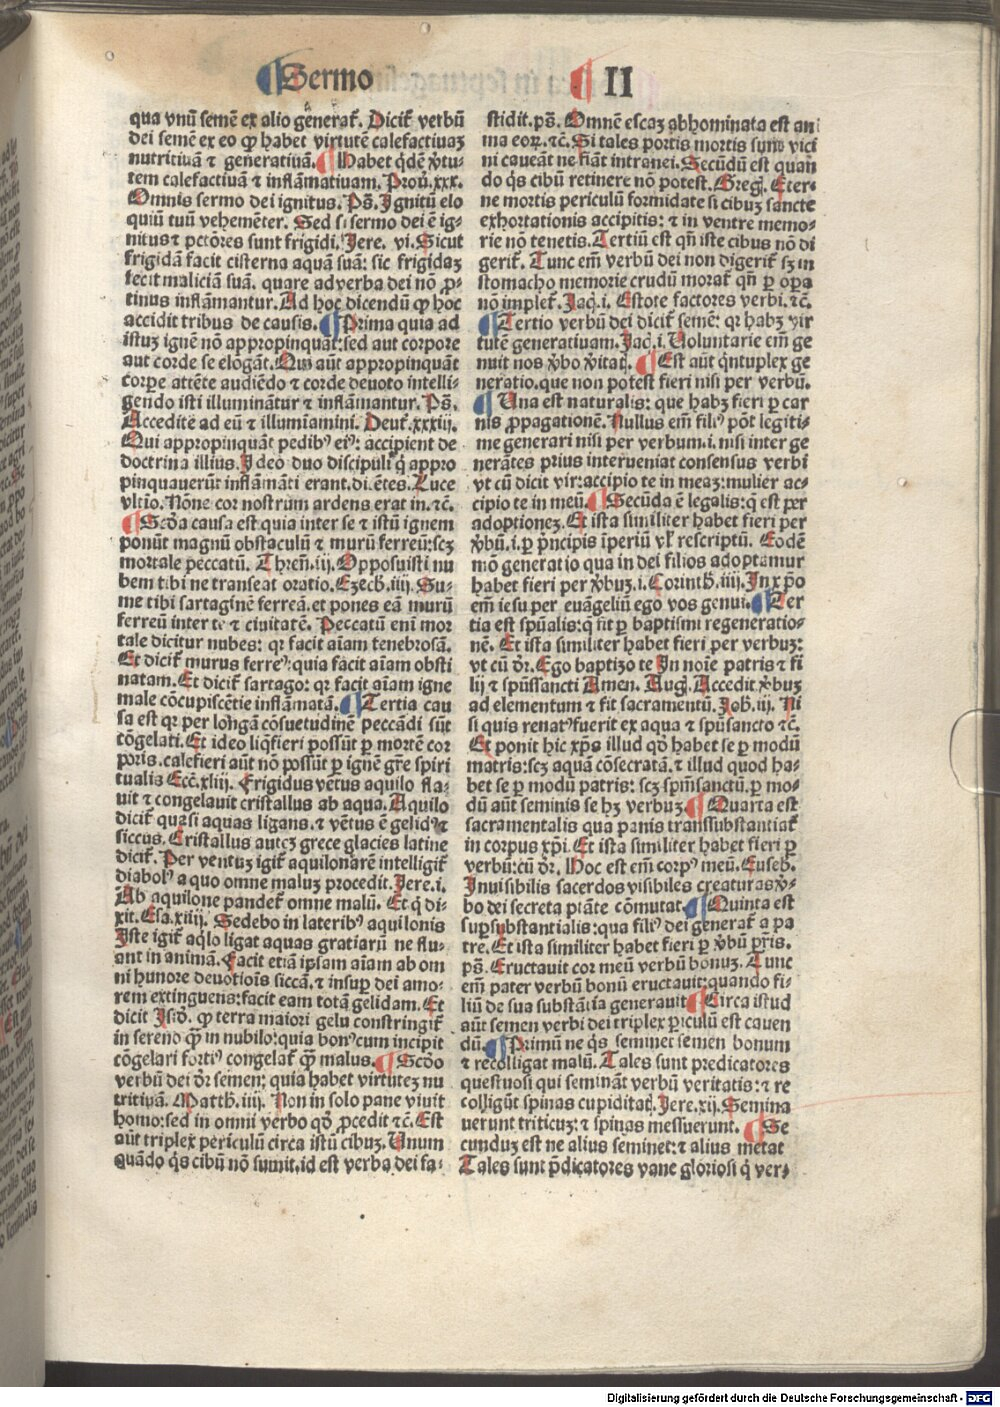 ¶Sermo ¶ II
qua vnū semē ex alio generat̄. Dicit̄ verbū
dei semē ex eo ꝙ habet virtutē calefactiuaꝫ
nutritiuā ⁊ generatiuā. ¶Habet q̇dē v̇tu-
tem calefactiuā ⁊ inflāmatiuam. Prou̇. xxx.
Omnis sermo dei ignitus. Pẜ. Ignitū elo
quiū tuū vehemēter. Sed si sermo dei ē ig-
nitus ⁊ pctōres sunt frigidi. Jere. vi. Sicut
frigidā facit cisterna aquā suā: sic frigidaꝫ
fecit maliciā suā. quare ad verba dei nō ꝓ-
tinus inflāmantur. Ad hoc dicendū ꝙ hoc
accidit tribus de causis. ¶Prima quia ad
istuꝫ ignē nō appropinquāt: sed aut corpore
aut corde se elōgāt. Qui aūt appropinquāt
corpe attēte audiēdo ⁊ corde deuoto intelli-
gendo isti illuminātur ⁊ inflāmantur. Pẜ.
Accedite ad eū ⁊ illumiamini. Deut̄. xxxiij.
Qui appropinquāt pedibꝰ eiꝰ: accipient de
doctrina illius. Ideo duo discipuli q̇ appro
pinquauerūt inflāmati erant. di. ētes. Luce
vltīo. Nōne cor nostrum ardens erat in. ⁊c.
¶Scd̄a causa est quia inter se ⁊ istū ignem
ponūt magnū obstaculū ⁊ murū ferreū: scꝫ
mortale peccatū. Thren̄. iij. Opposuisti nu
bem tibi ne transeat oratio. Ezech̄. iiij. Su-
me tibi sartaginē ferreā. et pones eā murū
ferreū inter te ⁊ ciuitatē. Peccatū enī mor
tale dicitur nubes: qꝛ facit aīam tenebrosā.
Et dicit̄ murus ferreꝰ: quia facit aīam obsti
natam. Et dicit̄ sartago: qꝛ facit aīam igne
male cōcupiscētie inflāmatā. ¶Tertia cau
sa est qꝛ per longā cōsuetudinē peccādi sūt
cōgelati. Et ideo liq̄fieri possūt ꝑ mortē cor
poris. calefieri aūt nō possūt ꝑ ignē gr̄e spiri
tualis Ecc̄. xliij. Frigidus vētus aquilo fla-
uit ⁊ congelauit cristallus ab aqua. Aquilo
dicit̄ quasi aquas ligans. ⁊ vētus ē gelidꝰ ⁊
siccus. Cristallus auteꝫ grece glacies latine
dicit̄. Per ventuꝫ igit̄ aquilonarē intelligit̄
diabolꝰ a quo omne maluꝫ procedit. Jere. i.
Ab aquilone pandet̄ omne malū. Et q̇ di-
xit. Esa. xiiij. Sedebo in lateribꝰ aquilonis
Iste igit̄ aq̇lo ligat aquas gratiarū ne flu-
ant in animā. Facit etiā ipsam aīam ab om
ni humore deuotiōis siccā. ⁊ insuꝑ dei amo-
rem extinguens: facit eam totā gelidam. Et
dicit Iſiđ. ꝙ terra maiori gelu constringit̄
in sereno q̄ꝫ in nubilo: quia bonꝰ cum incipit
cōgelari fortiꝰ congelat̄ q̄ꝫ malus. ¶Scd̄o
verbū dei dr̄ semen; quia habet virtuteꝫ nu
tritiuā. Matth̄. iiij. Non in solo pane viuit
homo: sed in omni verbo qđ ꝓcedit ⁊c. Est
aūt triplex periculū circa istū cibuꝫ. Unum
quādo q̇s cibū nō sumit, id est verba dei fa-
stidit. pẜ. Omnē escaꝫ abhominata est ani
ma eoꝝ. ⁊c. Si tales portis mortis sunt vici
ni caueāt ne fiāt intranei. Secūdū est quan
do q̇s cibū retinere nō potest. Greg̣. Eter-
ne mortis periculū formidate si cibuꝫ sancte
exhortationis accipitis: ⁊ in ventre memo-
rie nō tenetis. Tertiū est qn̄ iste cibus nō di
gerit̄. Tunc em̄ verbū dei non digerit̄ sꝫ in
stomacho memorie crudū morat̄ qn̄ ꝑ oꝑa
nō implet̄. Jac̣. i. Estote factores verbi. ⁊c.
¶Tertio verbū dei dicit̄ semē: qꝛ habꝫ vir
tutē generatiuam. Jac̣. i. Uoluntarie em̄ ge
nuit nos v̇bo v̇itaꝭ. ¶Est aūt q̇ntuplex ge
neratio. que non potest fieri nisi per verbū.
¶Una est naturalis: que habꝫ fieri ꝑ car
nis ꝓpagationē. Nullus em̄ filiꝰ pōt legiti-
me generari nisi per verbum. i. nisi inter ge
nerātes prius interueniat consensus verbi
vt cū dicit vir: accipio te in meaꝫ: mulier ac-
cipio te in meū. ¶Secūda ē legalis: q̄ est per
adoptioneꝫ. Et ista similiter habet fieri per
v̇bū. i. ꝑ p̄ncipis īperiū vl̄ rescriptū. Eodē
mō generatio qua in dei filios adoptamur
habet fieri per v̇buꝫ. i. Corinth̄. iiij. In xp̄o
em̄ iesu per euāgeliū ego vos genui. ¶Ter
tia est spūalis: q̄ fit ꝑ baptismi regeneratio-
nē. Et ista similiter habet fieri per verbuꝫ:
vt cū dr̄. Ego baptizo te In noīe patris ⁊ fi
lij ⁊ spūssancti Amen. Aug̣. Accedit v̇buꝫ
ad elementum ⁊ fit sacramentū. Joh̄. iij. Ni
si quis renatꝰ fuerit ex aqua ⁊ spūsancto ⁊c̄.
Et ponit hic xp̄s illud qđ habet se ꝑ modū
matris: scꝫ aquā cōsecratā. ⁊ illud quod ha-
bet se ꝑ modū patris: scꝫ spm̄sanctū. ꝑ mo-
dū aūt seminis se hꝫ verbuꝫ. ¶Quarta est
sacramentalis qua panis transsubstantiat̄
in corpus xp̄i. Et ista similiter habet fieri ꝑ
verbū: cū dr̄. Hoc est em̄ corpꝰ meū. Euseb̄.
Inuisibilis sacerdos visibiles creaturas v̇-
bo dei secreta ptāte cōmutat. ¶Quinta est
suꝑsubstantialis: qua filiꝰ dei generat̄ a pa
tre. Et ista similiter habet fieri ꝑ v̇bū pr̄is.
pẜ. Eructauit cor meū verbū bonuꝫ. Tunc
em̄ pater verbū bonū eructauit: quando fi-
liū de sua substātia generauit. ¶Circa istud
aūt semen verbi dei triplex ꝑiculū est cauen
dū. ¶Primū ne q̇s seminet semen bonum
⁊ recolligat malū. Tales sunt predicatores
questuosi qui semināt verbū veritatis: ⁊ re
colligūt spinas cupiditaꝭ. Jere. xij. Semina
uerunt triticuꝫ: ⁊ spinas messuerunt. ¶Se
cunduꝫ est ne alius seminet: ⁊ alius metat
Tales sunt p̄dicatores vane gloriosi q̇ ver-
Digitalisierung gefördert durch die Deutsche Forschungsgemeinschaft - DFG